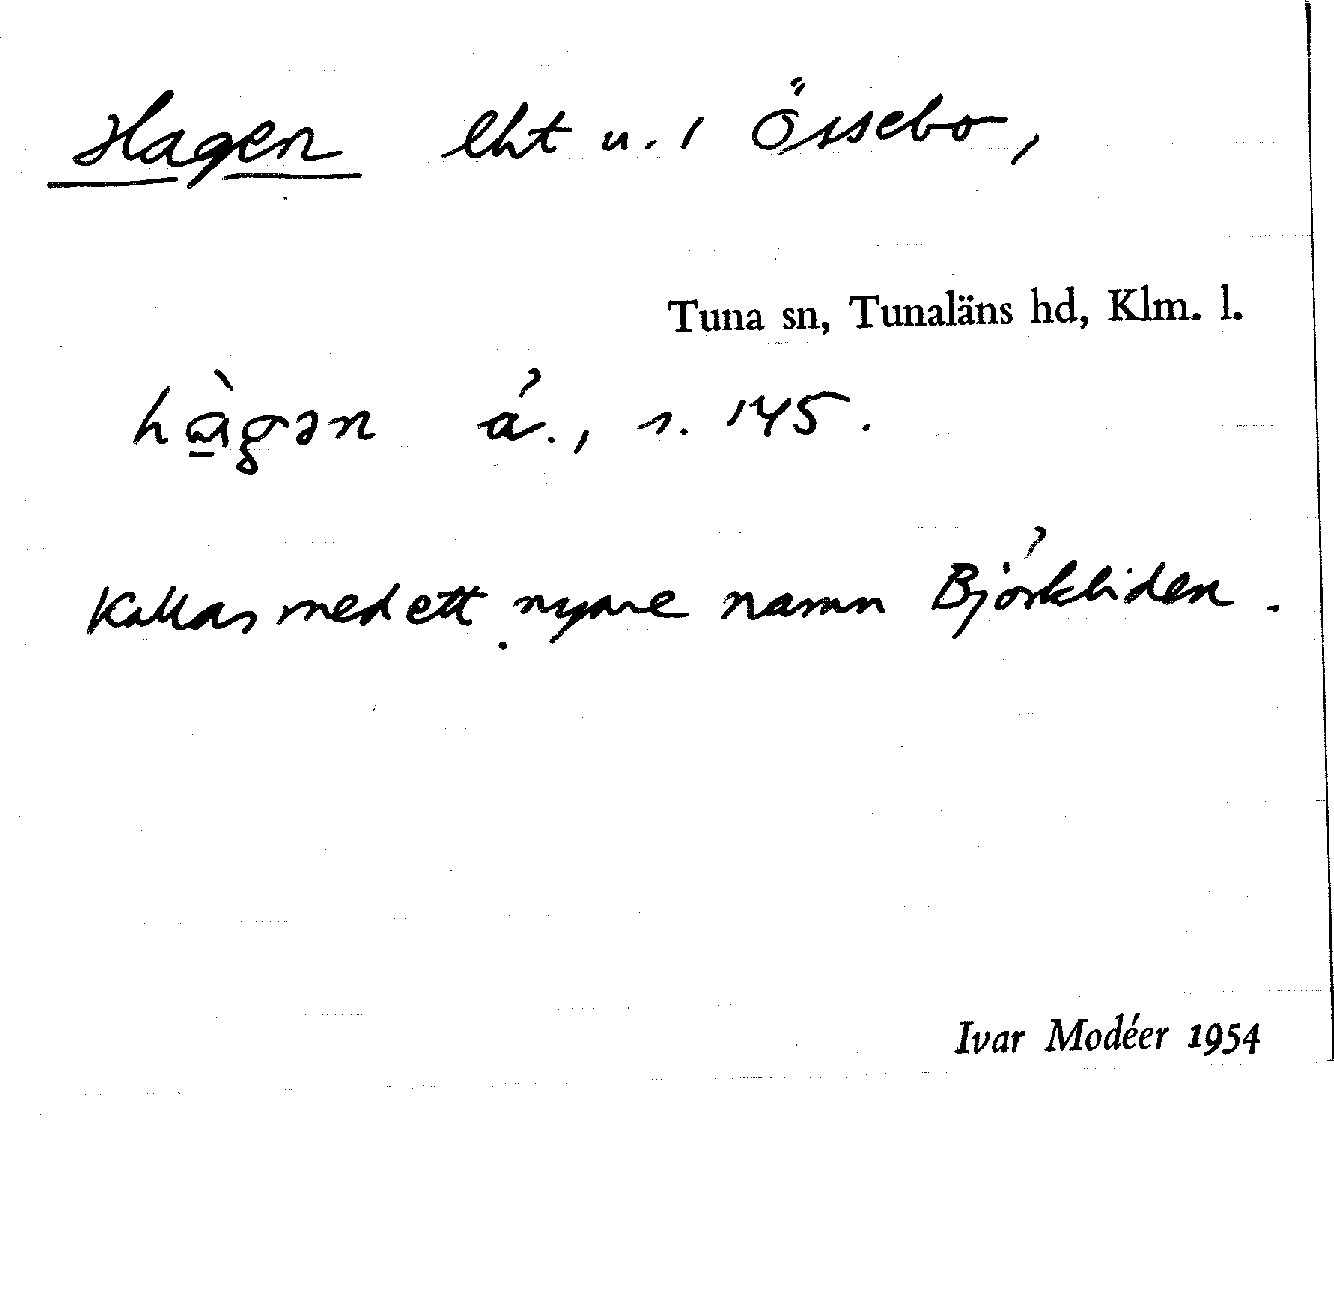 Hagen lht u. 1 Össebo,
Tuna sn, Tunaläns hd, Klm. l.
hàgən å., s. 145.
Kallas med ett nyare namn Björkliden.
Ivar Modéer 1954